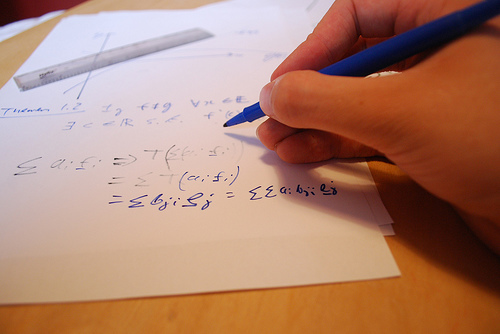 Theorem 1.2 If f≠g ∀x∈E
∃ c∈ℝ s.t. f'(
Σ aᵢ fᵢ ⇒ T(Σ(aᵢ fᵢ)
= Σ T(aᵢ fᵢ)
= Σ bⱼᵢ gⱼ = ΣΣ aᵢ bⱼᵢ gⱼ